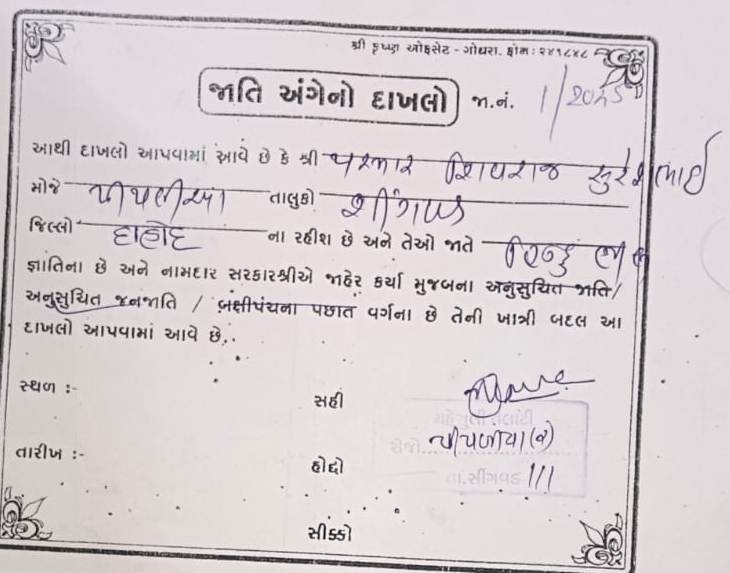 શ્રી કૃષ્ણ ઓફસેટ - ગોધરા. ફોન : ૨૪૧૮૪૮
જાતિ અંગેનો દાખલો જા.નં. 1/2025
આથી દાખલો આપવામાં આવે છે કે શ્રી પરમાર શિવરાજ સુરેશભાઈ
મોજે પીપળીયા તાલુકો શીંગવડ
જિલ્લો દાહોદ ના રહીશ છે અને તેઓ જાતે હિન્દુ ભીલ
જ્ઞાતિના છે અને નામદાર સરકારશ્રીએ જાહેર કર્યા મુજબના અનુસુચિત જાતિ/
અનુસુચિત જનજાતિ / બક્ષીપંચના પછાત વર્ગના છે તેની ખાત્રી બદલ આ
દાખલો આપવામાં આવે છે.
સ્થળ :-
સહી
તલાટી
સેજો
તારીખ :-
હોદ્દો
તા.સીંગવડ
સીક્કો